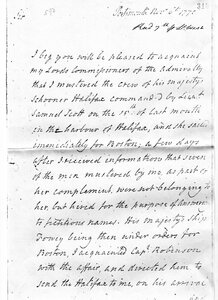 Sir
Portsmouth Decr. 5th. 1775
Read 7th
I beg you will be pleased to acquaint
my Lords Commissioners of the Admiralty
that I mustered the crew of his majesty's
schooner Halifax command'd by Lieut
Samuel Scott on the 15th of last month
in the harbour of Halifax, and she sailed
immediately for Boston, a few days
after I received information that seven
of the men mustered by me, as part of
her complement, were not belonging to
her, but hired for the purpose of answering
to fictitious names. His majesty's ship
Fowey being then under orders for
Boston, I acquainted Capt. Robinson
with the affair, and directed him to
send the Halifax to me, on his arrival